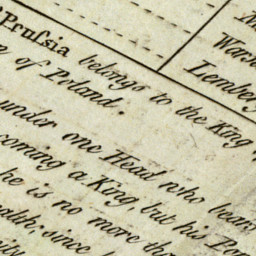 Pruſsia belongs to the King
of Poland.
under one Head who
coming a King, but his
he is no more
since
Wars
Lember